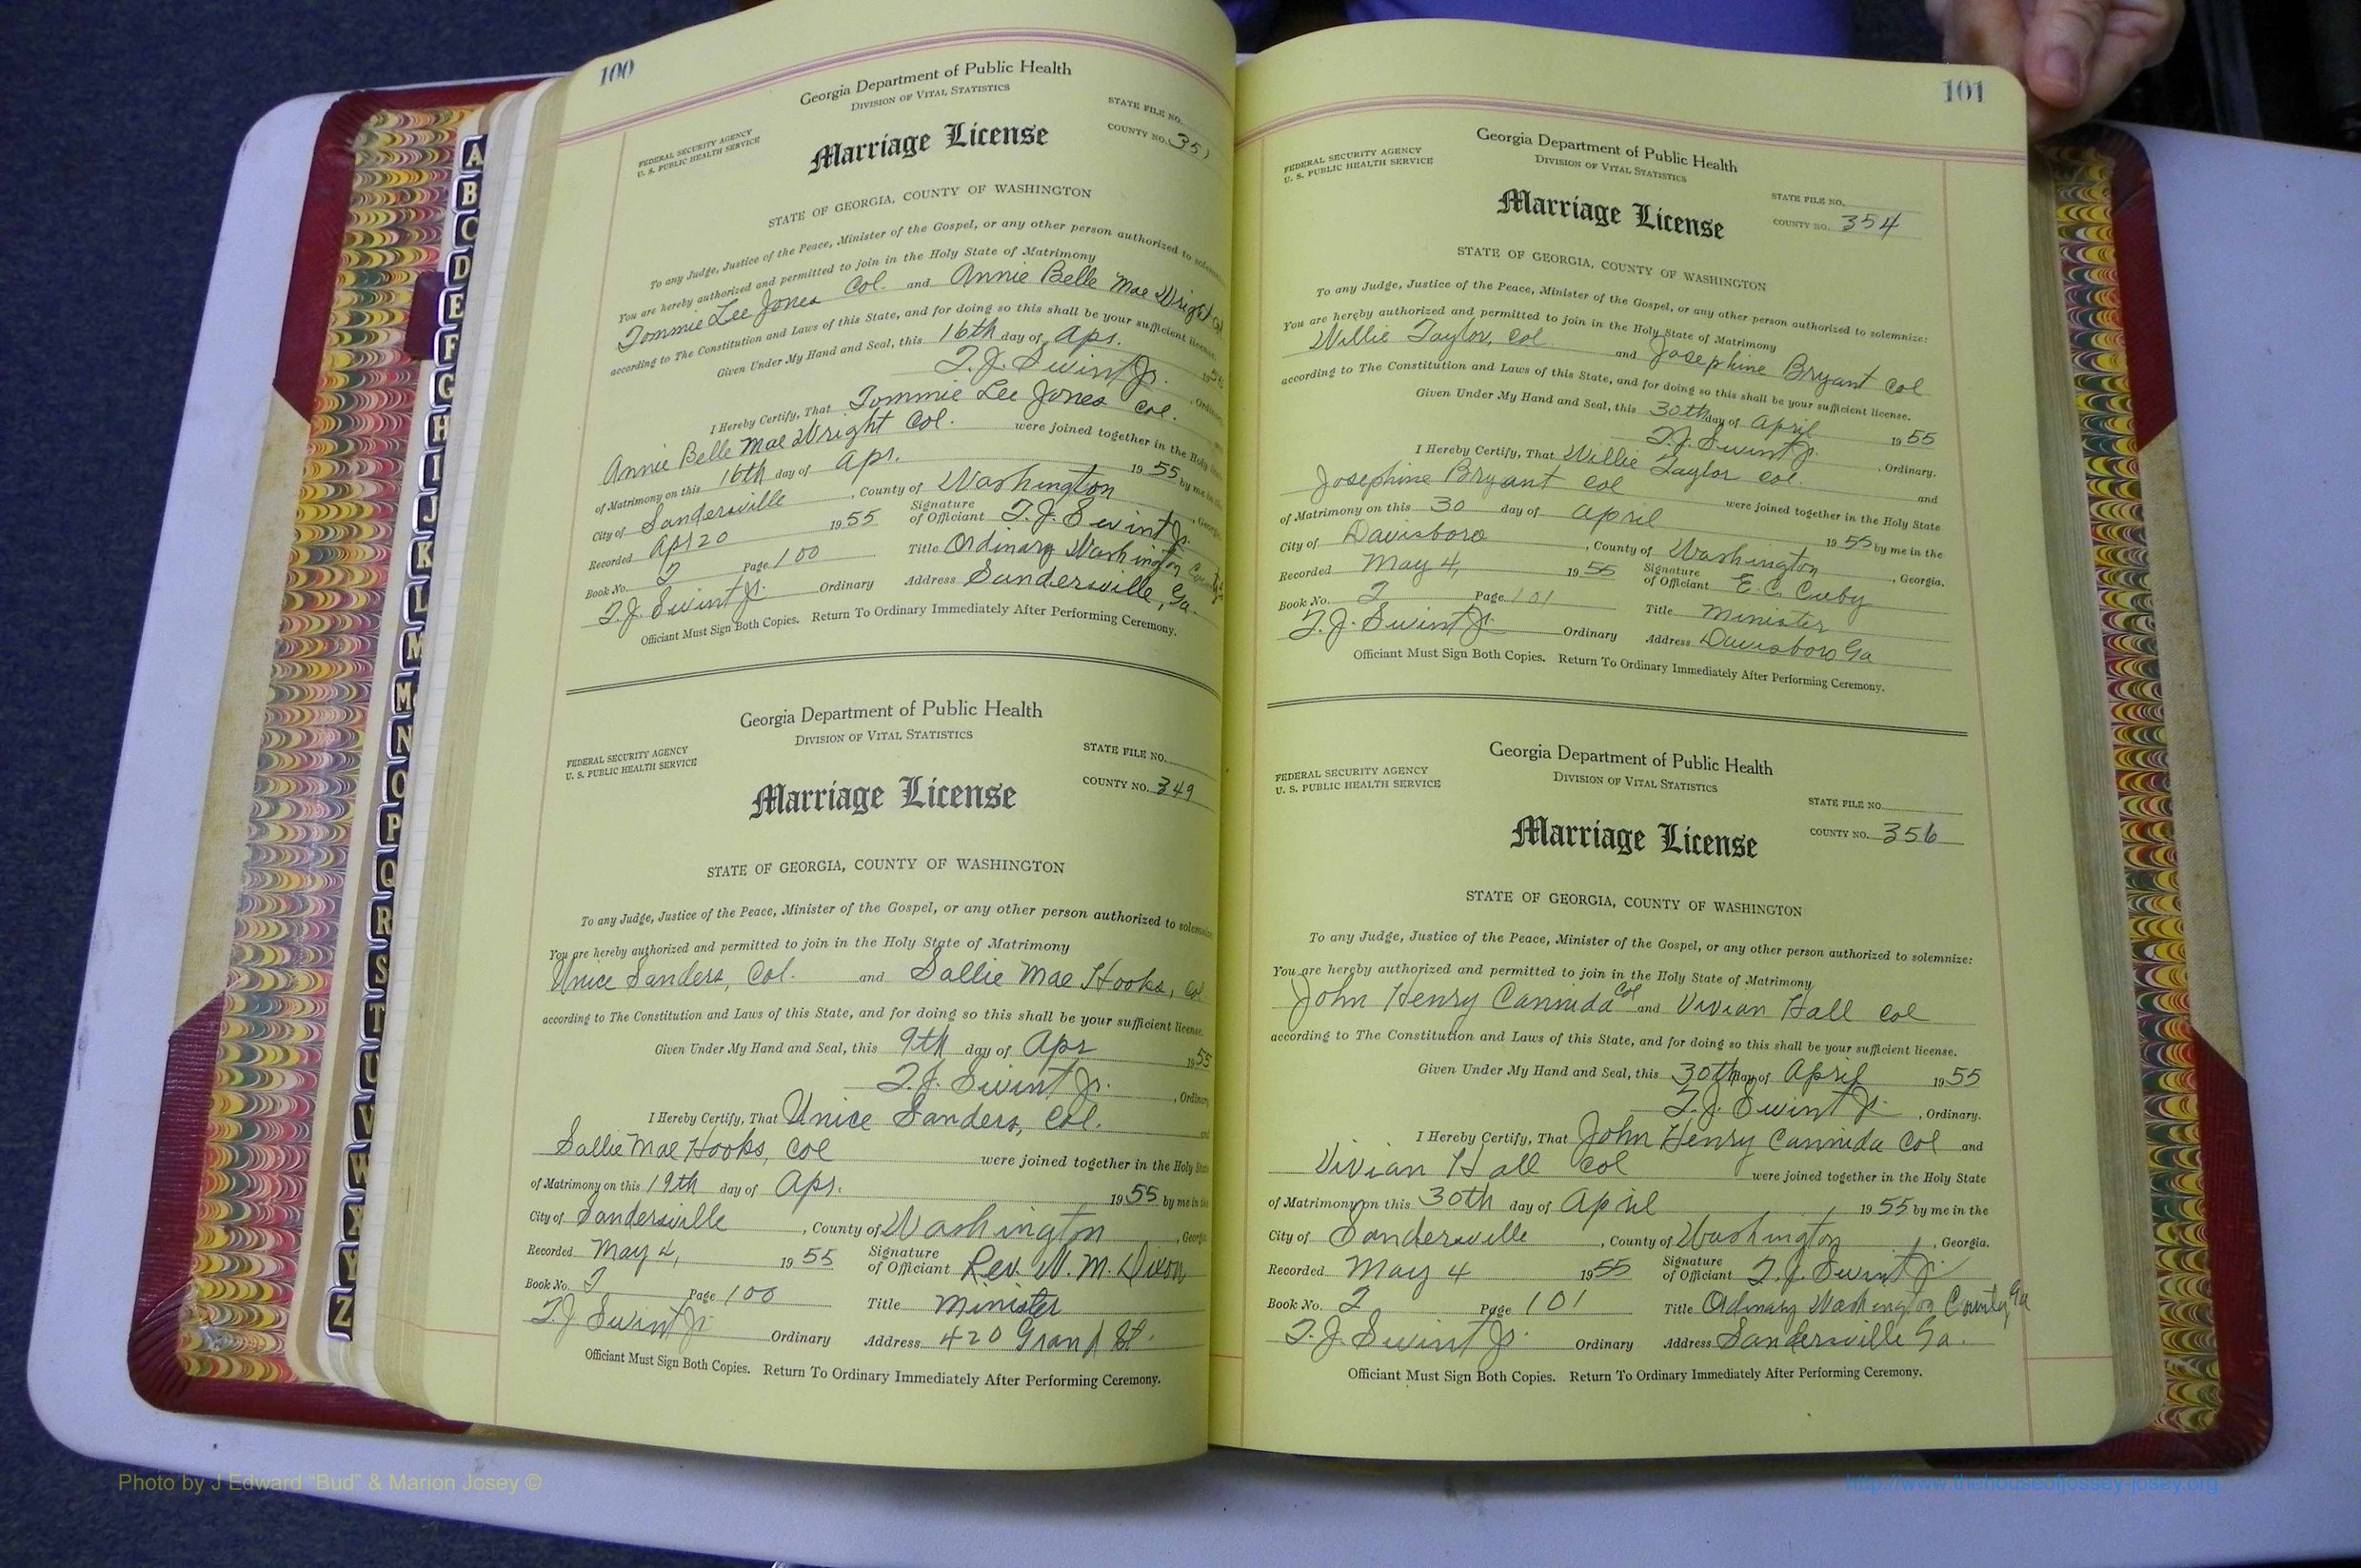 100
Georgia Department of Public Health
DIVISION OF VITAL STATISTICS
FEDERAL SECURITY AGENCY
U. S. PUBLIC HEALTH SERVICE
STATE FILE NO.
COUNTY NO. 351
Marriage License
STATE OF GEORGIA, COUNTY OF WASHINGTON
To any Judge, Justice of the Peace, Minister of the Gospel, or any other person authorized to
You are hereby authorized and permitted to join in the Holy State of Matrimony
Tommie Lee Jones Col. and Annie Belle Mae Wright
according to The Constitution and Laws of this State, and for doing so this shall be your sufficient license.
Given Under My Hand and Seal, this 16th day of Apr. 1955
T. J. Swint Jr.
I Hereby Certify, That Tommie Lee Jones Col.
Annie Belle Mae Wright Col. were joined together in the Holy
of Matrimony on this 16th day of Apr. 1955 by me in the
City of Sandersville, County of Washington
Recorded Apr 20 1955 Signature of Officiant T. J. Swint Jr.
Book No. 2 Page 100 Title Ordinary Washington
T. J. Swint Jr. Ordinary Address Sandersville, Ga.
Officiant Must Sign Both Copies. Return To Ordinary Immediately After Performing Ceremony.
Georgia Department of Public Health
DIVISION OF VITAL STATISTICS
FEDERAL SECURITY AGENCY
U. S. PUBLIC HEALTH SERVICE
STATE FILE NO.
COUNTY NO. 349
Marriage License
STATE OF GEORGIA, COUNTY OF WASHINGTON
To any Judge, Justice of the Peace, Minister of the Gospel, or any other person authorized to
You are hereby authorized and permitted to join in the Holy State of Matrimony
Unice Sanders, Col. and Sallie Mae Hooks, Col
according to The Constitution and Laws of this State, and for doing so this shall be your sufficient license.
Given Under My Hand and Seal, this 9th day of Apr 1955
T. J. Swint Jr. , Ordinary
I Hereby Certify, That Unice Sanders, Col.
Sallie Mae Hooks, Col were joined together in the Holy
of Matrimony on this 19th day of Apr. 1955 by me in the
City of Sandersville, County of Washington
Recorded May 4, 1955 Signature of Officiant Rev. W. M. Dixon
Book No. 2 Page 100 Title Minister
T. J. Swint Jr. Ordinary Address 420 Grand St.
Officiant Must Sign Both Copies. Return To Ordinary Immediately After Performing Ceremony.
101
Georgia Department of Public Health
DIVISION OF VITAL STATISTICS
FEDERAL SECURITY AGENCY
U. S. PUBLIC HEALTH SERVICE
STATE FILE NO.
COUNTY NO. 354
Marriage License
STATE OF GEORGIA, COUNTY OF WASHINGTON
To any Judge, Justice of the Peace, Minister of the Gospel, or any other person authorized to solemnize:
You are hereby authorized and permitted to join in the Holy State of Matrimony
Willie Taylor, Col. and Josephine Bryant Col
according to The Constitution and Laws of this State, and for doing so this shall be your sufficient license.
Given Under My Hand and Seal, this 30th day of April 1955
T. J. Swint Jr. , Ordinary.
I Hereby Certify, That Willie Taylor Col. and
Josephine Bryant Col were joined together in the Holy State
of Matrimony on this 30 day of April 1955 by me in the
City of Davisboro, County of Washington, Georgia.
Recorded May 4, 1955 Signature of Officiant E. C. Cuby
Book No. 2 Page 101 Title Minister
T. J. Swint Jr. Ordinary Address Davisboro Ga
Officiant Must Sign Both Copies. Return To Ordinary Immediately After Performing Ceremony.
Georgia Department of Public Health
DIVISION OF VITAL STATISTICS
FEDERAL SECURITY AGENCY
U. S. PUBLIC HEALTH SERVICE
STATE FILE NO.
COUNTY NO. 356
Marriage License
STATE OF GEORGIA, COUNTY OF WASHINGTON
To any Judge, Justice of the Peace, Minister of the Gospel, or any other person authorized to solemnize:
You are hereby authorized and permitted to join in the Holy State of Matrimony
John Henry Cannida Col and Vivian Hall Col
according to The Constitution and Laws of this State, and for doing so this shall be your sufficient license.
Given Under My Hand and Seal, this 30th day of April 1955
T. J. Swint Jr. , Ordinary.
I Hereby Certify, That John Henry Cannida Col and
Vivian Hall Col were joined together in the Holy State
of Matrimony on this 30th day of April 1955 by me in the
City of Sandersville, County of Washington, Georgia.
Recorded May 4 1955 Signature of Officiant T. J. Swint Jr.
Book No. 2 Page 101 Title Ordinary Washington County Ga
T. J. Swint Jr. Ordinary Address Sandersville Ga.
Officiant Must Sign Both Copies. Return To Ordinary Immediately After Performing Ceremony.
A
B
C
D
E
F
G
H
I
J
K
L
M
M
N
O
P
Q
R
S
T
U
V
W
X
Y
Z
Photo by J Edward “Bud” & Marion Josey ©
http://www.thehouseofjossey-josey.org